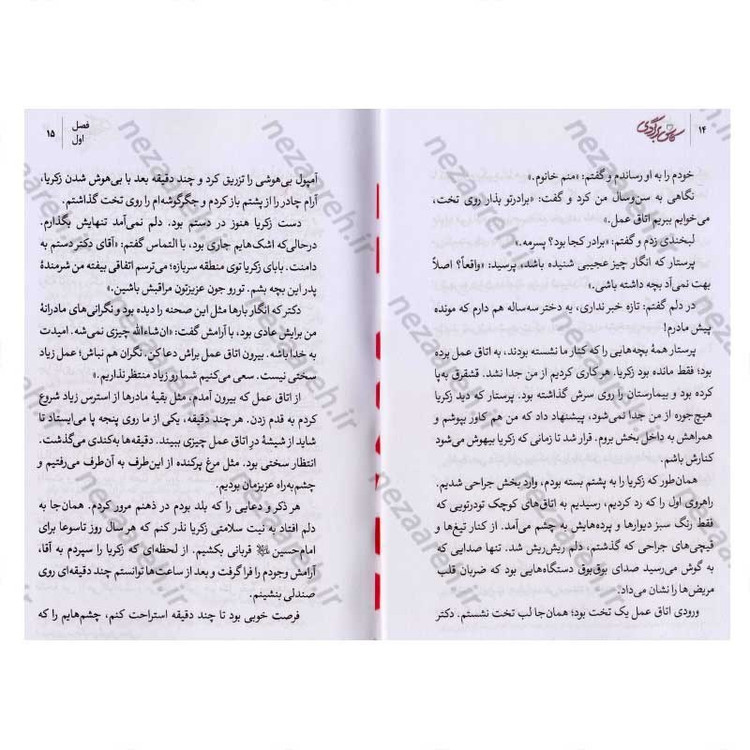 ۱۴
کاش برگردی
خودم را به او رساندم و گفتم: «منم خانوم.»
نگاهی به سن‌وسال من کرد و گفت: «برادرتو بذار روی تخت، می‌خوایم ببریم اتاق عمل.»
لبخندی زدم و گفتم: «برادر کجا بود؟ پسرمه.»
پرستار که انگار چیز عجیبی شنیده باشد، پرسید: «واقعاً؟ اصلاً
بهت نمی‌آد بچه داشته باشی.»
در دلم گفتم: تازه خبر نداری، یه دختر سه‌ساله هم دارم که مونده
پیش مادرم!
پرستار همهٔ بچه‌هایی را که کنار ما نشسته بودند، به اتاق عمل برده
بود؛ فقط مانده بود زکریا. هر کاری کردیم از من جدا نشد. قشقرق به‌پا
کرده بود و بیمارستان را روی سرش گذاشته بود. پرستار که دید زکریا
هیچ‌جوره از من جدا نمی‌شود، پیشنهاد داد که من هم کاور بپوشم و
همراهش به داخل بخش بروم. قرار شد تا زمانی که زکریا بیهوش می‌شود
کنارش باشم.
همان‌طور که زکریا را به پشتم بسته بودم، وارد بخش جراحی شدیم.
راهروی اول را که رد کردیم، رسیدیم به اتاق‌های کوچک تودرتویی که
فقط رنگ سبز دیوارها و پرده‌هایش به چشم می‌آمد. از کنار تیغ‌ها و
قیچی‌های جراحی که گذشتم، دلم ریش‌ریش شد. تنها صدایی که
به گوش می‌رسید صدای بوق‌بوق دستگاه‌هایی بود که ضربان قلب
مریض‌ها را نشان می‌داد.
ورودی اتاق عمل یک تخت بود؛ همان‌جا لب تخت نشستم. دکتر
فصل
اول
۱۵
آمپول بی‌هوشی را تزریق کرد و چند دقیقه بعد با بی‌هوش شدن زکریا،
آرام چادر را از پشتم باز کردم و جگرگوشه‌ام را روی تخت گذاشتم.
دست زکریا هنوز در دستم بود. دلم نمی‌آمد تنهایش بگذارم.
درحالی‌که اشک‌هایم جاری بود، با التماس گفتم: «آقای دکتر دستم به
دامنت. بابای زکریا توی منطقه سربازه؛ می‌ترسم اتفاقی بیفته من شرمندهٔ
پدر این بچه بشم. تورو جون عزیزتون مراقبش باشین.»
دکتر که انگار بارها مثل این صحنه را دیده بود و نگرانی‌های مادرانهٔ
من برایش عادی بود، با آرامش گفت: «ان‌شاءالله چیزی نمی‌شه. امیدت
به خدا باشه. بیرون اتاق عمل براش دعا کن. نگران هم نباش؛ عمل زیاد
سختی نیست. سعی می‌کنیم شما رو زیاد منتظر نذاریم.»
از اتاق عمل که بیرون آمدم، مثل بقیهٔ مادرها از استرس زیاد شروع
کردم به قدم زدن. هر چند دقیقه، یکی از ما روی پنجه پا می‌ایستاد تا
شاید از شیشهٔ درِ اتاق عمل چیزی ببیند. دقیقه‌ها به‌کندی می‌گذشت.
انتظار سختی بود. مثل مرغ پرکنده از این‌طرف به آن‌طرف می‌رفتیم و
چشم‌به‌راه عزیزمان بودیم.
هر ذکر و دعایی را که بلد بودم در ذهنم مرور کردم. همان‌جا به
دلم افتاد به نیت سلامتی زکریا نذر کنم که هر سال روز تاسوعا برای
امام‌حسین قربانی بکشیم. از لحظه‌ای که زکریا را سپردم به آقا،
آرامش وجودم را فرا گرفت و بعد از ساعت‌ها توانستم چند دقیقه‌ای روی
صندلی بنشینم.
فرصت خوبی بود تا چند دقیقه استراحت کنم، چشم‌هایم را که
nezaareh.ir